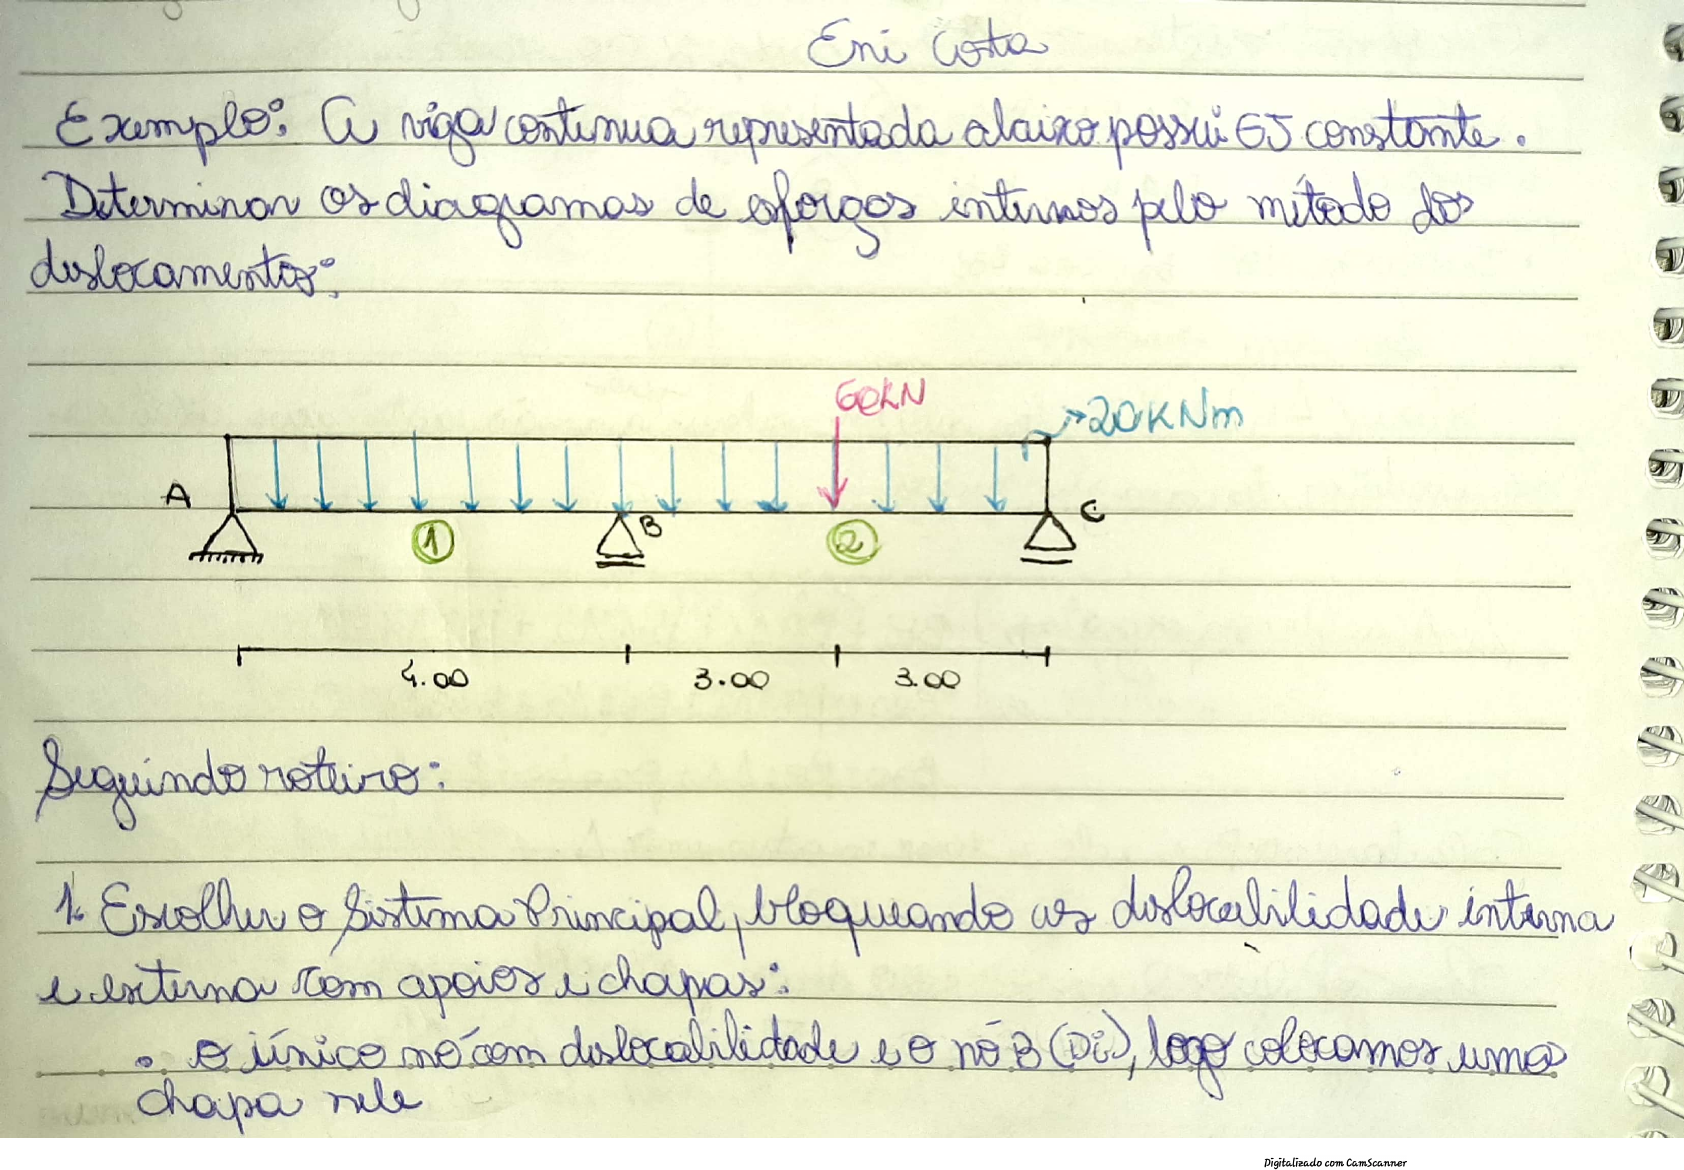 Eni Costa
Exemplo: A viga continua representada abaixo possui EJ constante.
Determinar os diagramas de esforços internos pelo método dos
deslocamentos:
60kN
20KNm
A
B
C
1
2
4.00
3.00
3.00
Seguindo roteiro:
1. Escolher o Sistema Principal, bloqueando as deslocabilidade interna
e externa com apoios e chapas:
• o único nó com deslocabilidade e o nó B (Di), logo colocamos uma
chapa nele
Digitalizado com CamScanner